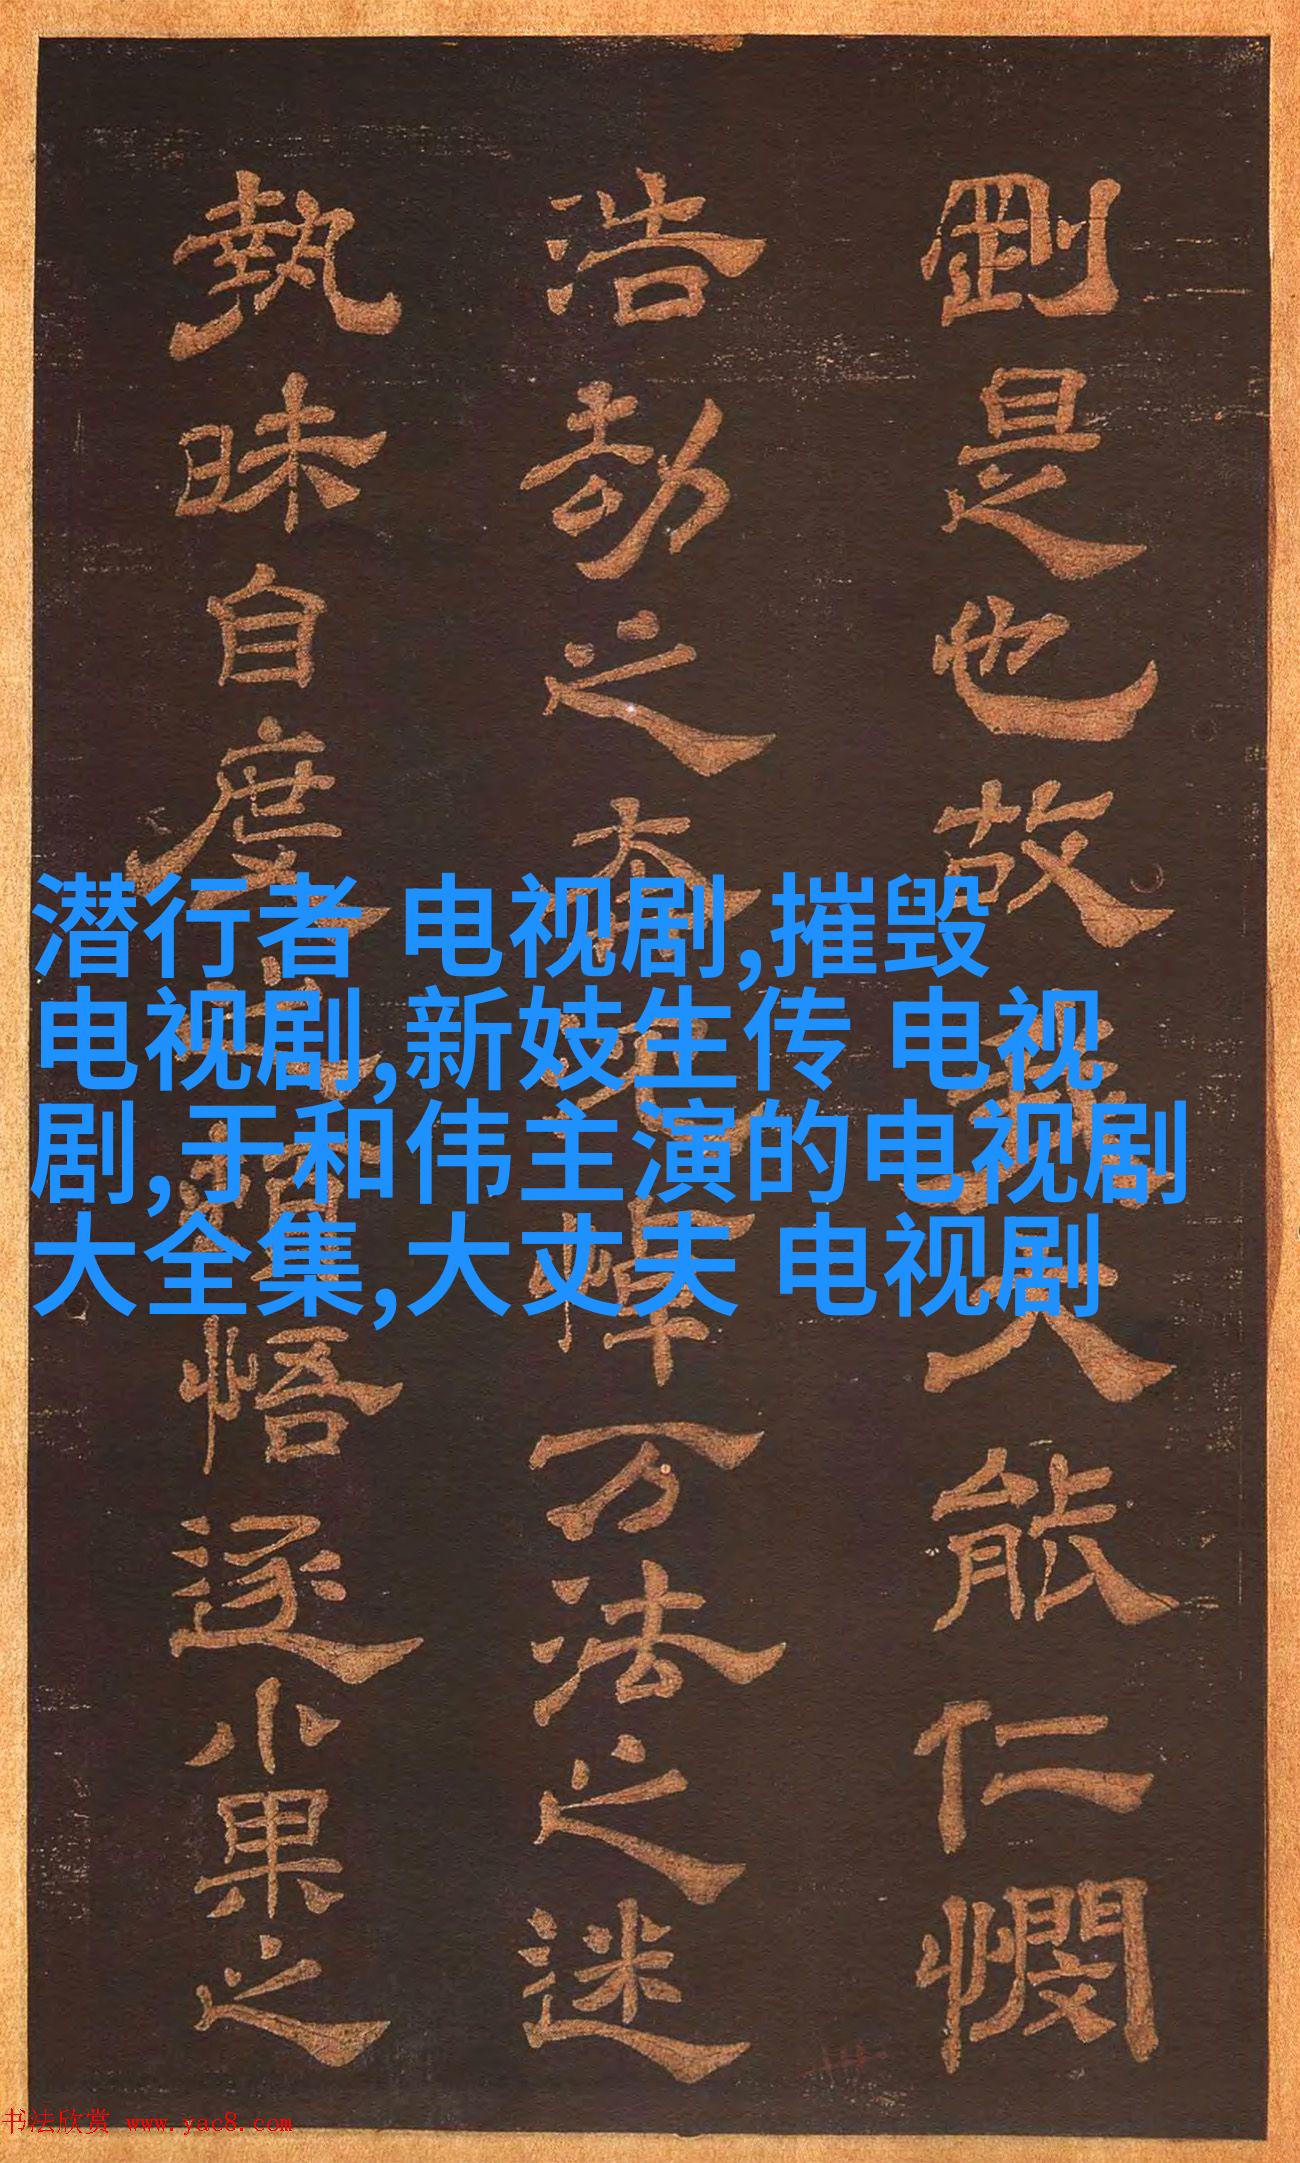 剛是也故大能仁憫
浩劫之夲悼万法之迷
執昧自度悟逐小果之
潜行者 电视剧,摧毁
电视剧,新妓生传 电视
剧,于和伟主演的电视剧
大全集,大丈夫 电视剧
书法欣赏 www.yac8.com